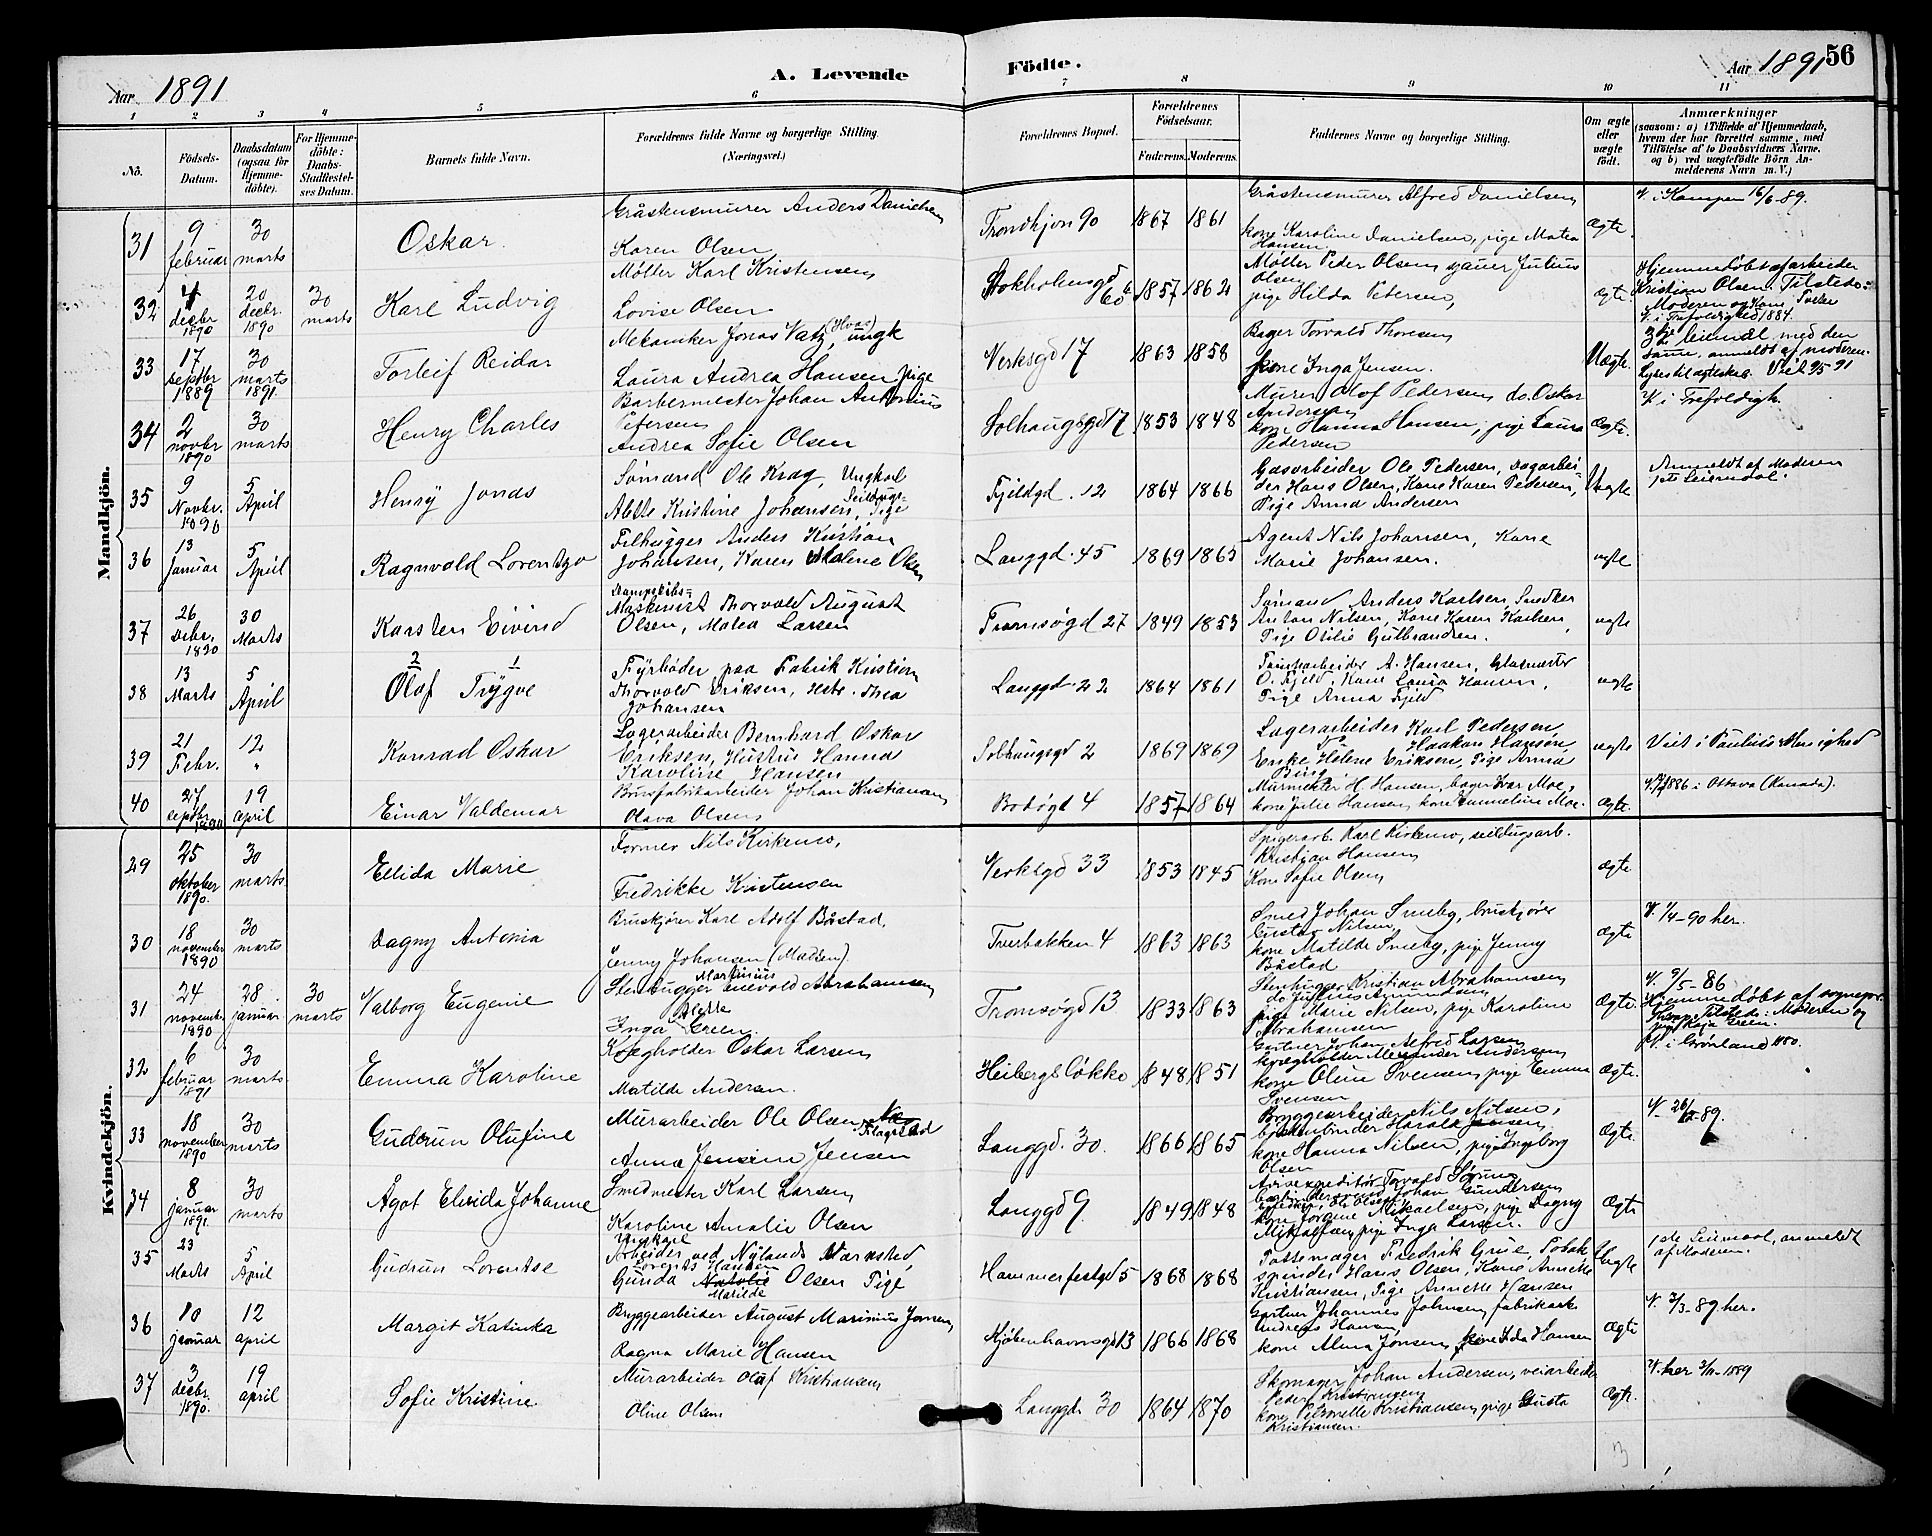 56
Aar 1891
A. Levende
Födte.
Aar 1891
1 2 3 4 5 6 7 8 9 10 11
No.
Födsels-
Datum.
Daabsdatum
(ogsaa for
Hjemme-
döbte).
For Hjemme-
döbte:
Daabs-
Stadfæstel-
ses Datum.
Barnets fulde Navn.
Forældrenes fulde Navne og borgerlige Stilling.
(Næringsvei.)
Forældrenes Bopæl.
Forældrenes
Födselsaar.
Faderens. Moderens.
Faddernes Navne og borgerlige Stilling.
Om ægte
eller
uægte
födt.
Anmærkninger
(saasom: a) i Tilfælde af Hjemmedaab,
hvem der har forrettet samme, med
Tilföielse af to Daabsvidners Navne.
og b) ved uægtefödte Börn An-
melderens Navn m. V.)
Mandkjön.
31
9
februar
30
marts
Oskar.
Gråstensmurer Anders Danielsen
Karen Olsen
Trondhjgd 90
1867 1861
Gråstensmurer Alfred Danielsen
kone Karoline Danielsen, pige Matea
Hansen
Ægte.
V. i Kampen 16/6-89.
32
4
decbr
1890
20
decbr.
1890
30
marts
Karl Ludvig
Møller Karl Kristensen
Lovise Olsen
Stokholmsgd
60b
1857 1862
Møller Peder Olsen, gauer Julius
Olsen
pige Hilda Petersen,
ægte.
Hjemmedøbt af arbeider
Kristian Olsen. Tilstede:
Moderen og Kone
V. i Trefoldighed 1884.
33
17
septbr
1889
30
marts
1891.
Torleif Reidar
Mekaniker Jonas Vatz, (Hvas) ungk
Laura Andrea Hansen pige
Verksgd 17
1863 1858
Bager Torvald Thoresen
kone Inga Jensen.
Uægte.
leiemål med den
samme, anmeldt af moderen.
34
2
novbr
1890
30
marts
Henry Charles
Barbermester Johan Antonius
Petersen
Andrea Sofie Olsen
Solhaugsgd 17
1853 1848
Murer Olof Pedersen, do. Oskar
Andersen
kone Hanna Hansen, pige Laura
Pedersen
Ægte.
V. i Trefoldigh.
35
9
Novbr.
1890
5
April
Henry Jonas
Sømand Ole Krag, Ungkarl
Alette Kristine Johansen, Pige
Fjeldgd. 12
1864 1866
Gasarbeider Ole Pedersen, Dagarbei-
der Hans Olsen, Kone Karen Pedersen,
Pige Anna Andersen
Uægte
Anmeldt af Moderen
1ste Leiemål.
36
13
Januar
5
April
Ragnvald Lorentzo
Filhugger Anders Kristian
Johansen, Karen Malene Olsen
Langgd. 45
1869 1865
Agent Nils Johansen, Kone
Marie Johansen.
ægte
37
26
Debr.
1890
30
Marts
Karsten Eivind
Dampskibs-
Maskinist Thorvald August
Olsen, Matea Larsen
Tromsøgd 27
1849 1853
Sømand Anders Karlsen, Snedker
Anton Nilsen, Kone Karen Karlsen,
Pige Otilie Gulbrandsen.
ægte
38
13
Marts
5
April
2 1
Olof Trygve
Fyrbøder paa Fabrik Kristian
Thorvald Eriksen, Thea
Johansen
Langgd. 22
1864 1861
Fabrikarbeider A. Hansen, Glasmester
O. Fjeld, Kone Laura Hansen,
Pige Anna Fjeld
ægte
39
21
Febr.
12
"
Konrad Oskar
Lagerarbeider Bernhard Oskar
Eriksen, Hustru Hanna
Karoline Hansen
Solhaugsgd 2
1869 1869
Lagerarbeider Karl Pedersen
Do Haakon Hansen
Enke Helene Eriksen, Pige Anna
ægte
Viet i Paulus Menighed
40
27
septbr
1890
19
april
Einar Valdemar
Brusfabrikarbeider Johan Kristiansen
Olava Olsen
Bodøgd 4
1857 1864
Murmester H. Hansen, bager Ivar Moe,
kone Julie Hansen, kone Emmeline Moe.
Ægte.
1886 i Ottava (Kanada).
Kvindekjön.
29
25
oktober
1890.
30
marts
Ellida Marie
Former Nils Kirkemo,
Fredrikke Kristensen
Verksgd 33
1853 1845
Spigerarb. Karl Kirkemo, seildugsarb.
Kristian Hansen
Kone Sofie Olsen
ægte
30
18
november
1890
30
marts
Dagny Antonia
Bruskjører Karl Adolf Båstad.
Jenny Johansen (Madsen)
Tverbakken 4
1863 1863
Smed Johan Smeby, bruskjører
Gustav Nilsen
kone Matilde Smeby, pige Jenny
Båstad
Ægte
V. 1/4-90 her.
31
24
novembr
1890
28
januar.
30
marts
Valborg Eugenie
Martinius
Stenhugger Enevold Abrahamsen
Alette
Inga Green.
Tromsøgd 13
1833 1863
Stenhugger Kristian Abrahamsen
pige Marie Nilsen, pige Karoline
Abrahamsen
Ægte.
V. 9/5-86
Hjemmedøbt af sognepr.
Tilstede: Moderen og
pige Kaja Green.
32
6
februar
1891
30
marts
Emma Karoline
Kvægholder Oskar Larsen
Matilde Andersen.
Heibergs Løkke
1848 1851
Gartner Johan Alfred Larsen
kvægholder Alexander Andersen
kone Oline Svensen, pige Emma
Svensen
Ægte.
V. i Grønland 1880.
33
18
november
1890
30
marts
Gudrun Olufine
Murarbeider Ole Olsen
Anna Jensine Jensen
Langgd. 30.
1866 1865
Bryggearbeider Nils Nilsen,
børstenbinder Harald Jensen.
kone Hanna Nilsen, pige Ingeborg
Olsen
Ægte.
34
8
januar
1891.
30
marts
Ågot Elvida Johanne
Smedmester Karl Larsen
Karoline Amalie Olsen
Langgd 9.
1849 1848
Avisexpeditør Torvald
Johan Gundersen
kone Jorgine Mikaelsen, pige Dagny
Mikaelsen, pige Inga Larsen.
Ægte
35
23
Marts
5
April
Gudrun Lorentse
Ungkarl
Arbeider ved Nylands Værksted,
Lorents Hansen
Gunda Natalie Olsen Pige
Matilde
Hammerfestgd 5
1868 1868
Pottemager Fredrik Grue, Tobak
spinder Hans Olsen, Kone Annette
Kristiansen, Pige Annette Hansen
Uægte
1ste Leiemaal, anmeldt
af Moderen.
36
10
januar
12
april
Margit Katinka
Bryggearbeider August Marinius Jonsen,
Dagna Marie Hansen
Kjøbenhavnsgd 13
1866 1868
Gartner Johannes Johnsen, fabrikarb.
Andreas Hansen
kone Alma Jonsen, kone Ida Hansen
Ægte
V. 3/3-89. her.
37
3
decbr.
1890.
19
april
Sofie Kristine
Murarbeider Oluf Kristiansen
Oline Olsen
Langgd. 30
1864 1870
Skomager Johan Andersen, veiarbeider
Peder Kristiansen
kone Petronelle Kristiansen, pige Gusta
Kristiansen.
Ægte.
V. her 3/11-1889